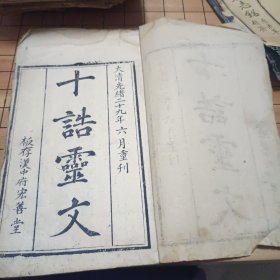 大清光緒二十九年六月重刊
十誥靈文
板存漢中府宏善堂